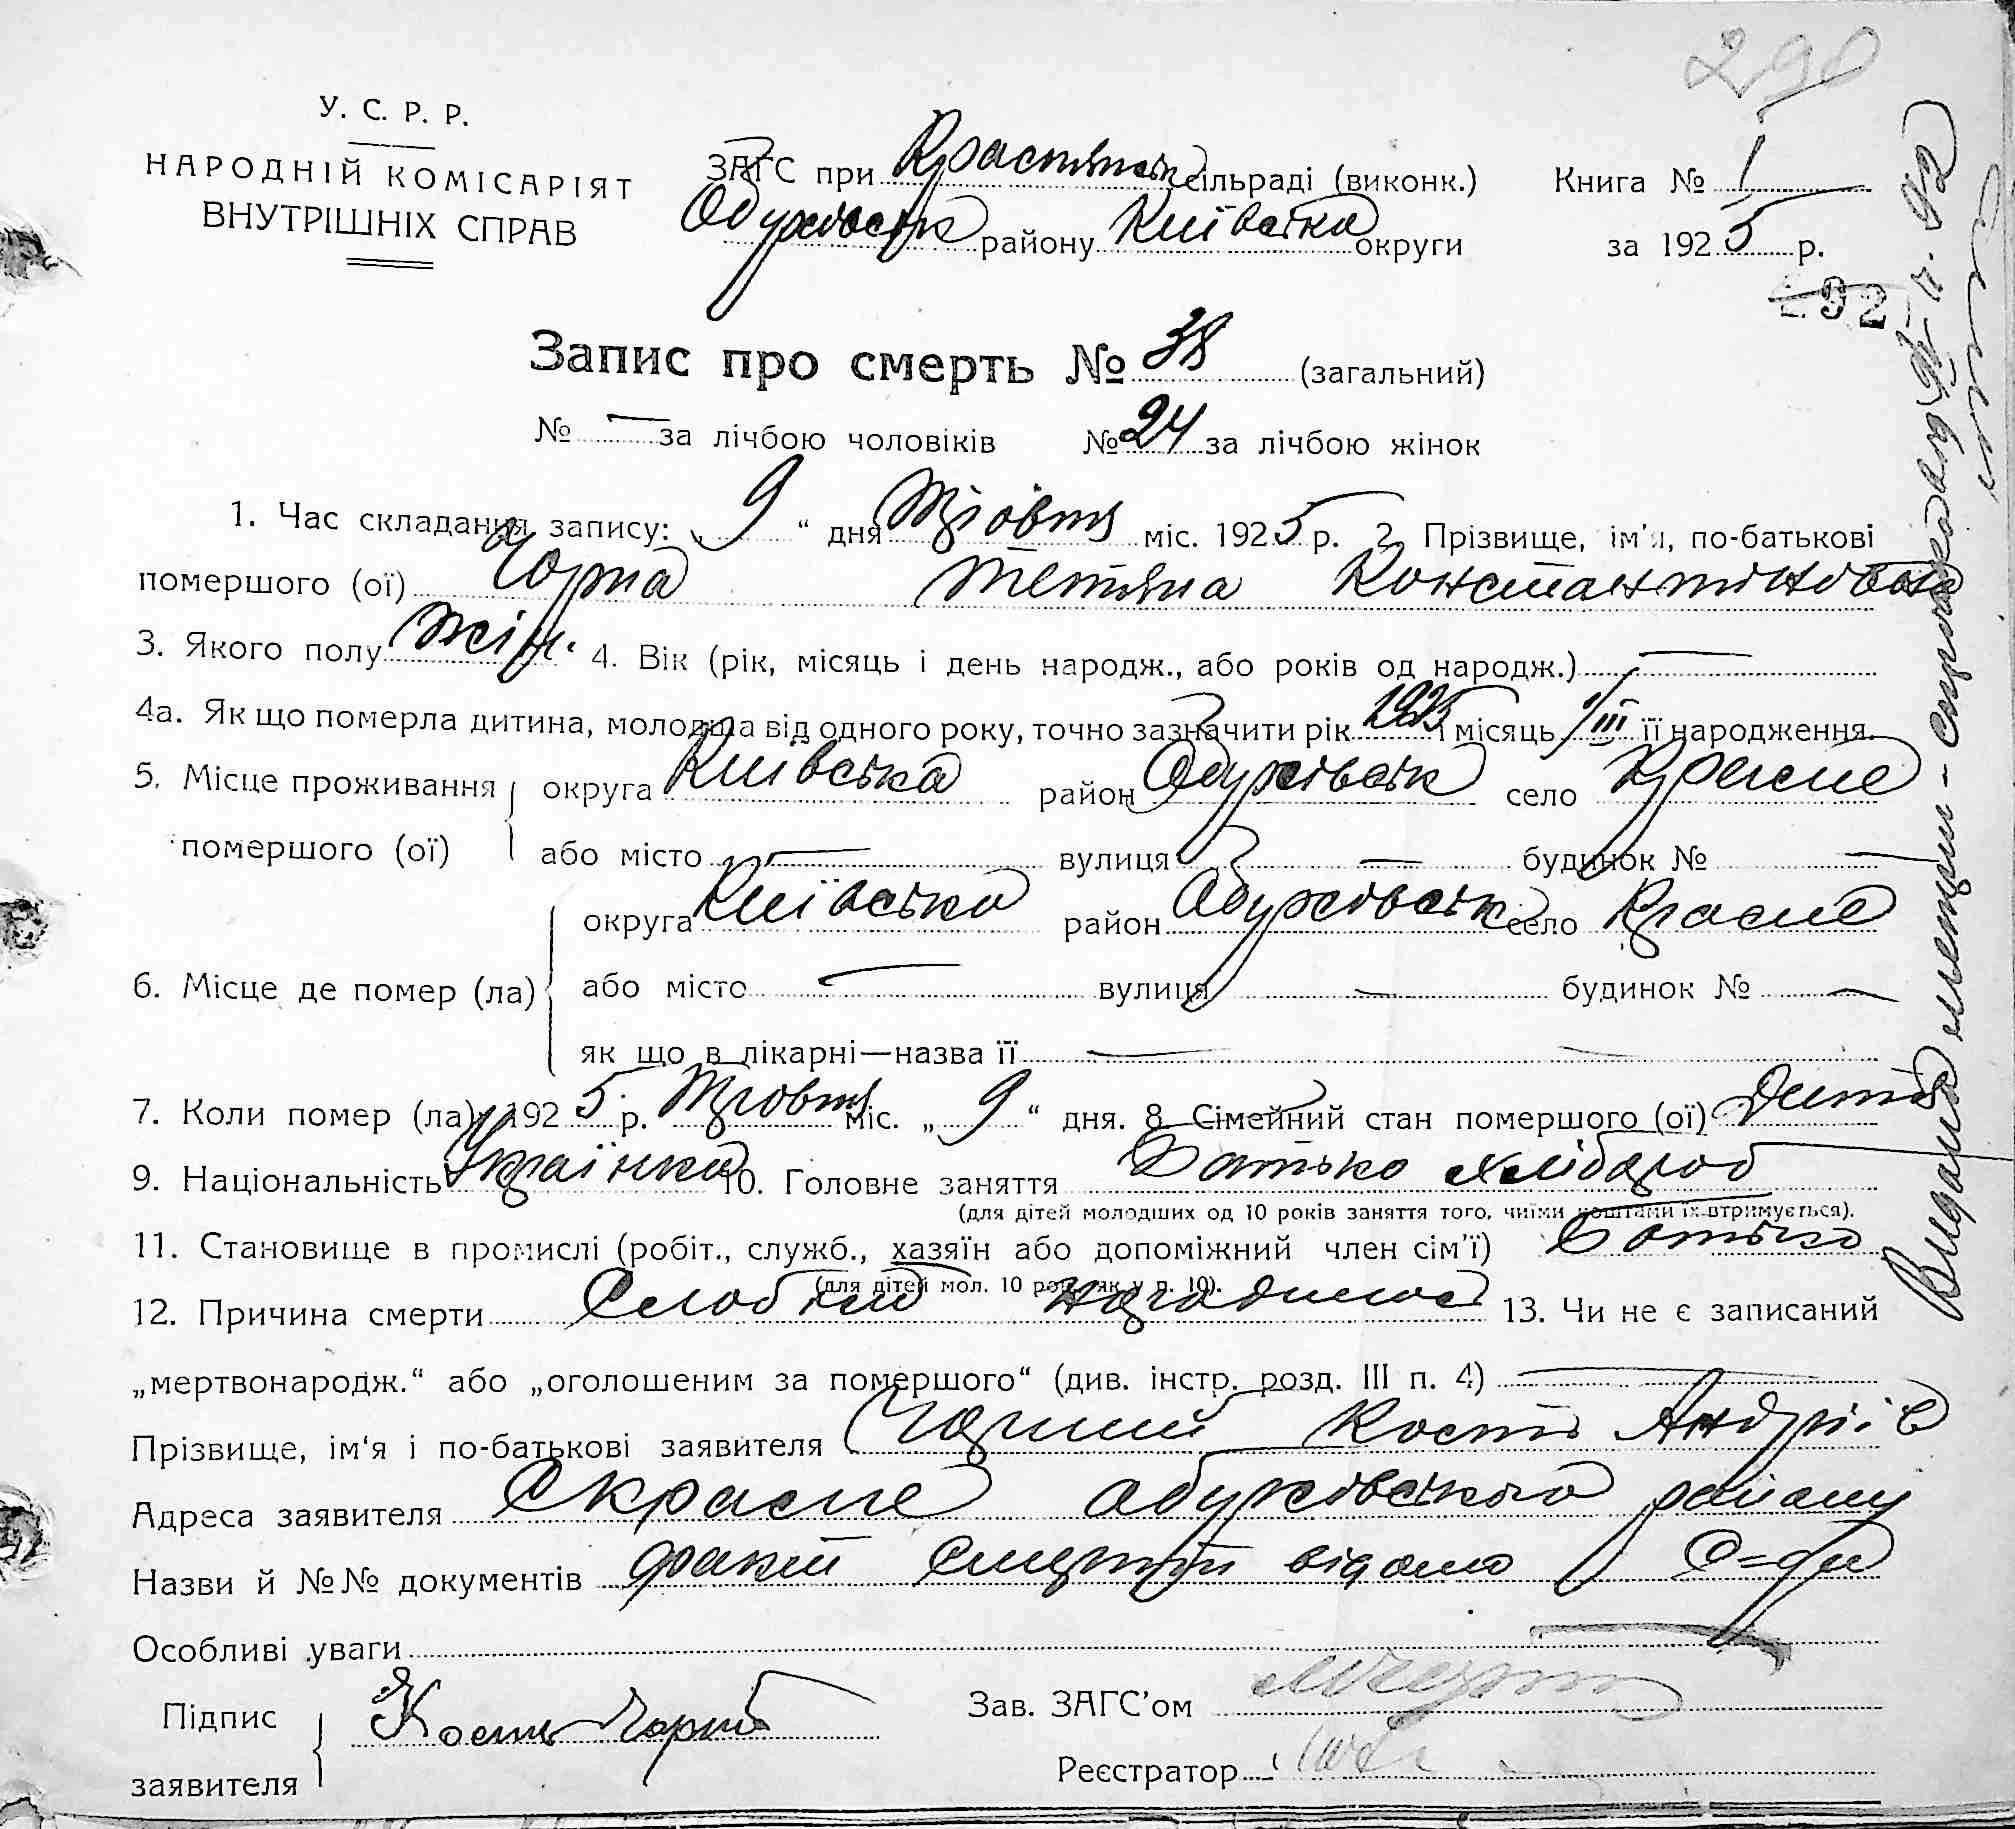 290
У. С. Р. Р.
НАРОДНІЙ КОМІСАРІЯТ
ВНУТРІШНІХ СПРАВ
ЗАГС при Краснянськ сільраді (виконк.)
Обухівськ району Київська округи
Книга № 1
за 1925 р.
292
Запис про смерть № 38 (загальний)
№ — за лічбою чоловіків № 24 за лічбою жінок
1. Час складання запису: „ 9 “ дня Жовтня міс. 1925 р. 2. Прізвище, ім'я, по-батькові
помершого (ої) Чорна Тетяна Константиновна
3. Якого полу жін. 4. Вік (рік, місяць і день народж., або років од народж.) —
4а. Як що померла дитина, молодша від одного року, точно зазначити рік 1925 і місяць 1/III її народження.
5. Місце проживання округа Київська район Обухівськ село Красне
помершого (ої) або місто — вулиця — будинок № —
округа Київська район Обухівськ село Красне
6. Місце де помер (ла) або місто — вулиця — будинок № —
як що в лікарні—назва її —
7. Коли помер (ла) 1925 р. Жовтня міс. „ 9 “ дня. 8. Сімейний стан помершого (ої) Дитя
9. Національність Українка 10. Головне заняття Батько хлібороб
(для дітей молодших од 10 років заняття того, чиїми коштами їх втримується).
11. Становище в промислі (робіт., служб., хазяїн або допоміжний член сім'ї) Батько
(для дітей мол. 10 рок. як у п. 10).
12. Причина смерти 13. Чи не є записаний
„мертвонародж.“ або „оголошеним за помершого“ (див. інстр. розд. III п. 4) —
Прізвище, ім'я і по-батькові заявителя Чорний Кость Андріїв
Адреса заявителя С Красне Обухівського району
Назви й №№ документів факт смерти відомо
Особливі уваги —
Підпис заявителя Кость Чорний
Зав. ЗАГС'ом
Реєстратор